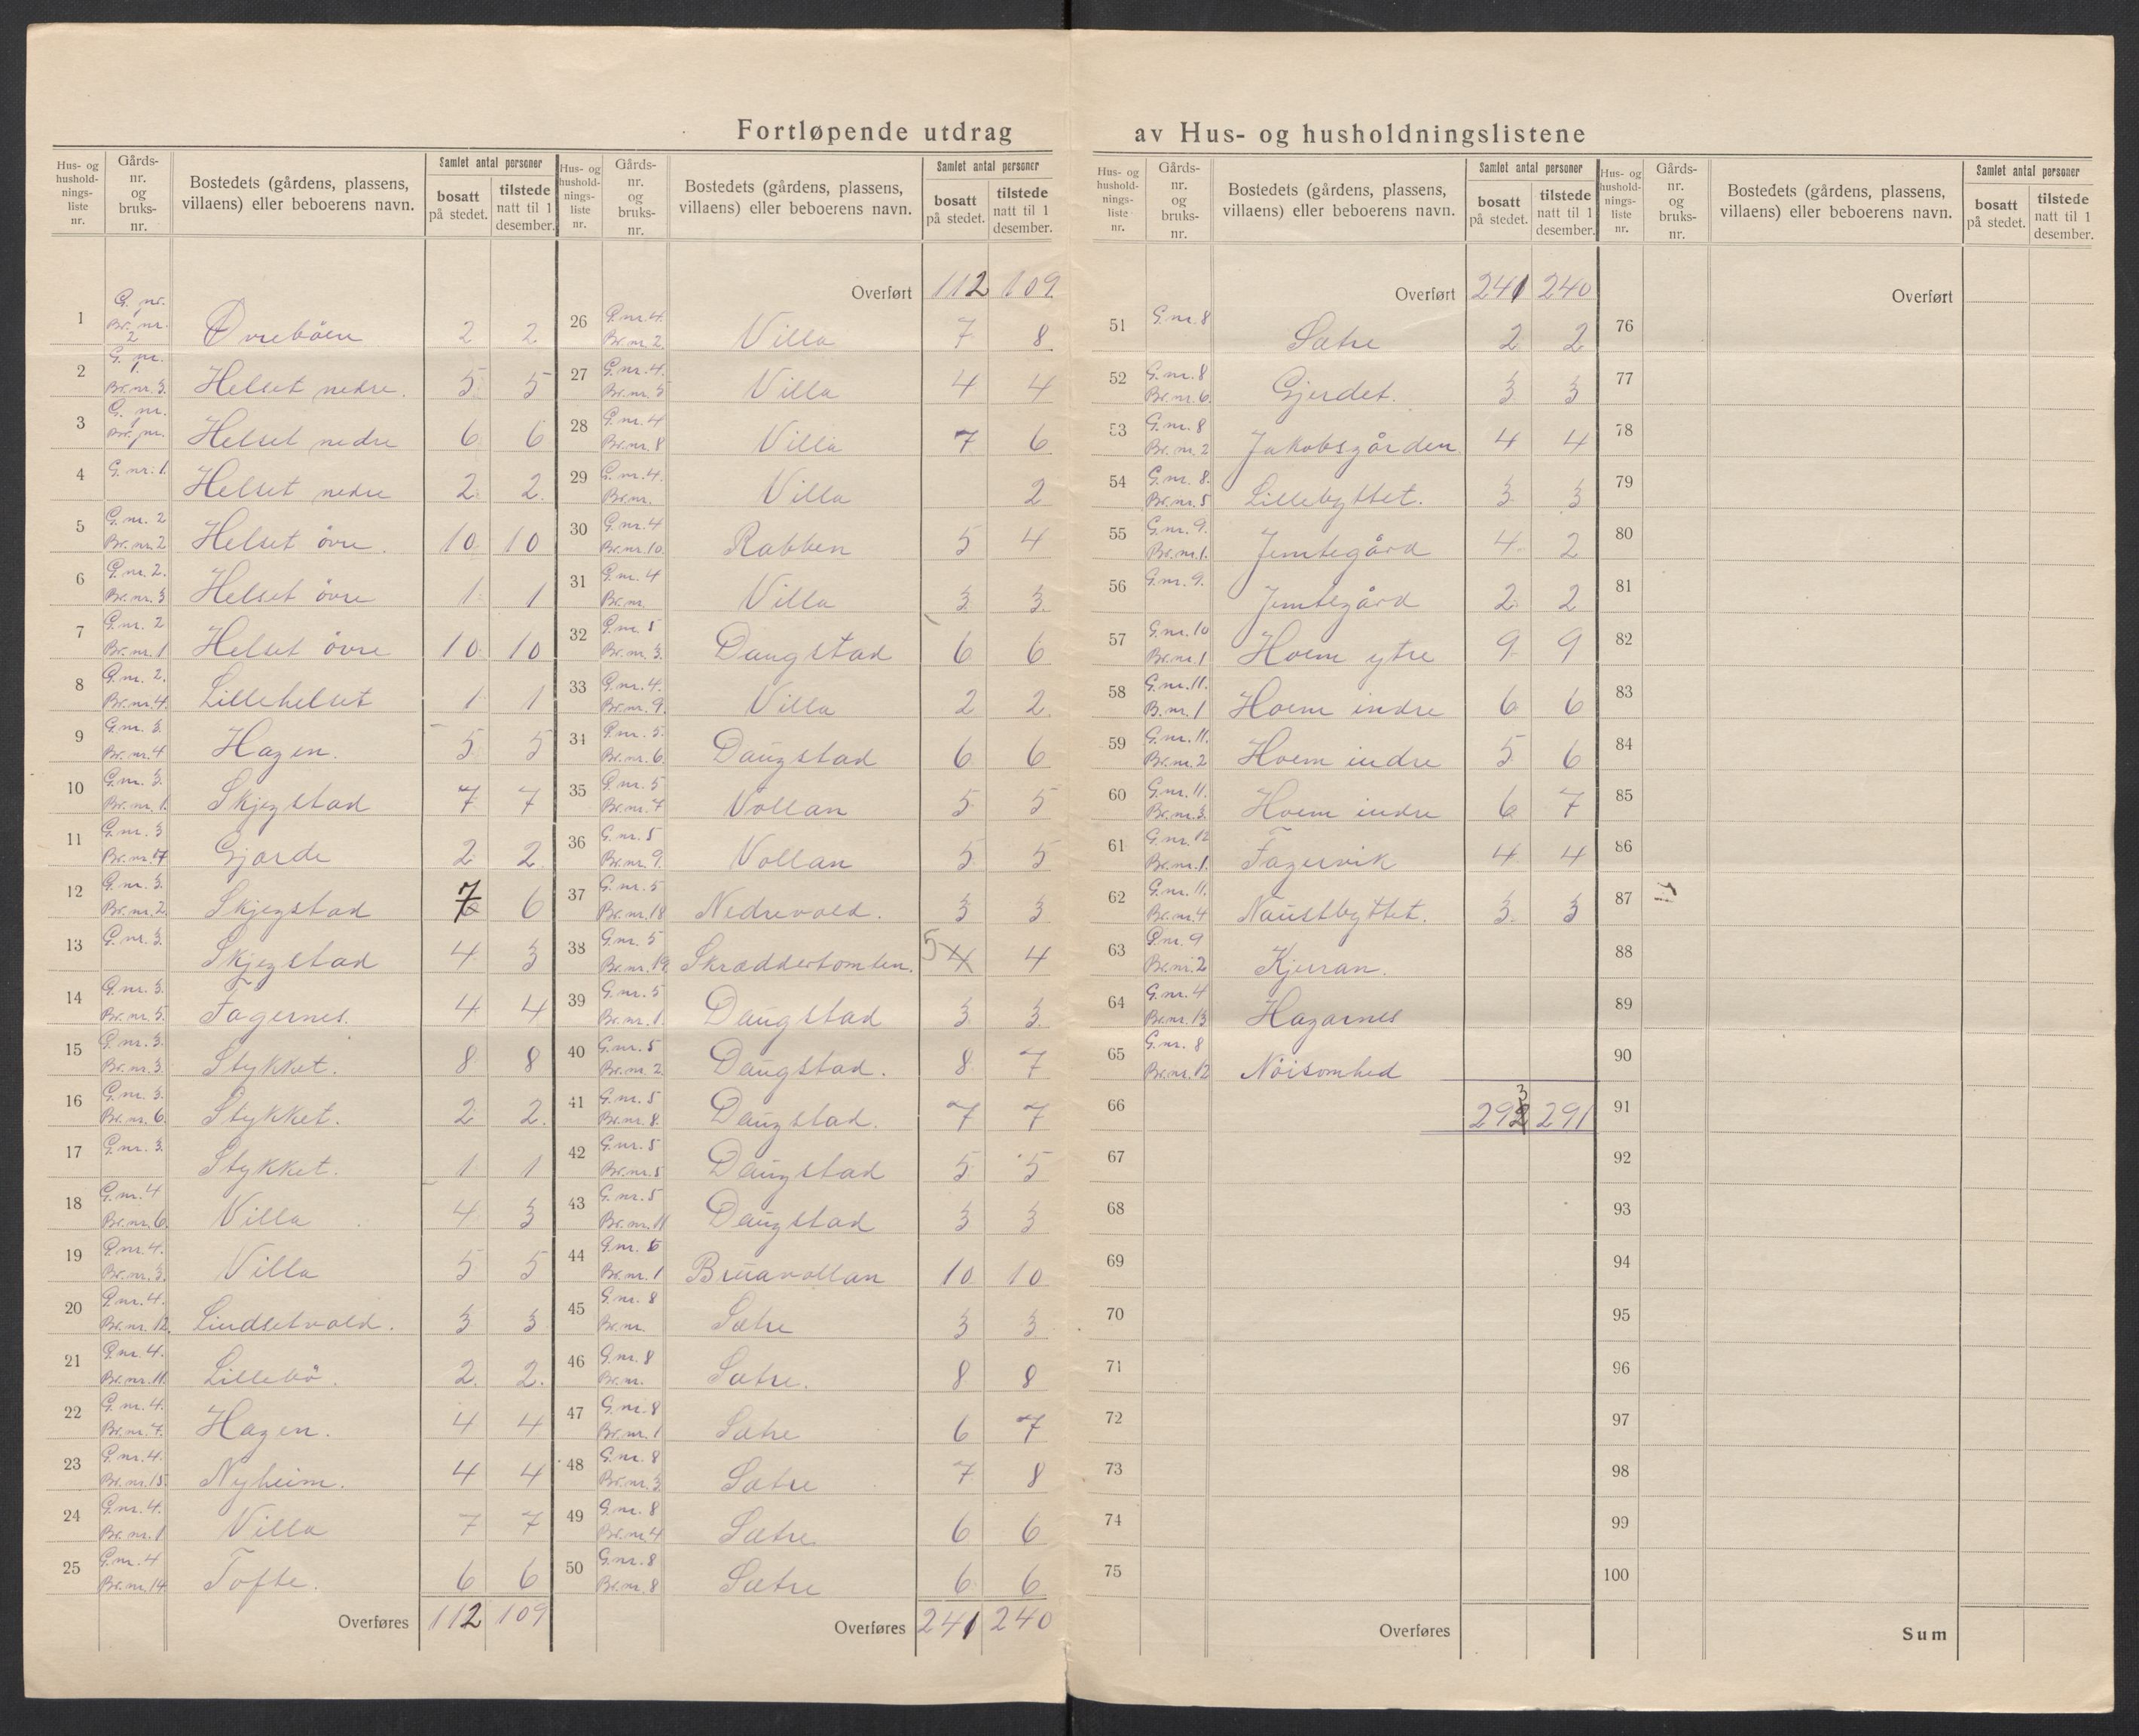 Fortløpende utdrag av Hus- og husholdningslistene
Hus- og husholdnings-liste nr. | Gårds-nr. og bruks-nr. | Bostedets (gårdens, plassens, villaens) eller beboerens navn. | Samlet antal personer | bosatt på stedet. | tilstede natt til 1 desember.
1 G. nr. 1 Br. nr. 2 Øvrebøen 2 2
2 G. nr. 1. Br. nr. 3. Helset nedre. 5 5
3 G. nr. 1 Br. nr. Helset nedre 6 6
4 G. nr. 1. Helset nedre 2 2
5 G. nr. 2 Br. nr. 2 Helset övre. 10 10
6 G. nr. 2. Br. nr. 3 Helset övre 1 1
7 G. nr. 2 Br. nr. 1 Helset övre 10 10
8 G. nr. 2. Br. nr. 4. Lillehelset 1 1
9 G. nr. 3. Br. nr. 4 Hagen. 5 5
10 G. nr. 3. Br. nr. 1. Skjegstad 7 7
11 G. nr. 3 Br. nr. 17 Gjørde 2 2
12 G. nr. 3. Br. nr. 2. Skjegstad 7 6
13 G. nr. 3. Skjegstad 4 3
14 G. nr. 3. Br. nr. 5. Fagernes. 4 4
15 G. nr. 3. Br. nr. 3. Stykket. 8 8
16 G. nr. 3. Br. nr. 6. Stykket. 2 2.
17 G. nr. 3. Stykket. 1 1
18 G. nr. 4 Br. nr. 6. Villa 4 3
19 G. nr. 4. Br. nr. 3. Villa 5 5
20 G. nr. 4. Br. nr. 12. Lindsetvold. 3 3
21 G. nr. 4. Br. nr. 11. Lillebö. 2. 2.
22 G. nr. 4. Br. nr. 7. Hagen. 4 4
23 G. nr. 4. Br. nr. 15. Nyheim. 4 4
24 G. nr. 4. Br. nr. 1 Villa 7 7
25 G. nr. 4 Br. nr. 14 Tofte. 6 6
Overføres 112 109
Hus- og husholdnings-liste nr. | Gårds-nr. og bruks-nr. | Bostedets (gårdens, plassens, villaens) eller beboerens navn. | Samlet antal personer | bosatt på stedet. | tilstede natt til 1 desember.
Overført 112 109
26 G. nr. 4. Br. nr. 2. Villa 7 8
27 G. nr. 4. Br. nr. 5 Villa 4 4
28 G. nr. 4 Br. nr. 8 Villa 7 6
29 G. nr. 4. Br. nr. Villa 2
30 G. nr. 4 Br. nr. 10. Rabben 5 4
31 G. nr. 4 Br. nr. Villa 3 3.
32 G. nr. 5 Br. nr. 3. Daugstad 6 6
33 G. nr. 4. Br. nr. 9. Villa 2 2
34 G. nr. 5. Br. nr. 6. Daugstad 6 6
35 G. nr. 5 Br. nr. 7 Vollan 5 5
36 G. nr. 5 Br. nr. 9. Vollan 5 5
37 G. nr. 5 Br. nr. 18 Nedrevold. 3 3
38 G. nr. 5 Br. nr. 19. Skræddertomten. 5 4 4
39 G. nr. 5 Br. nr. 1. Daugstad 3 3.
40 G. nr. 5 Br. nr. 2 Daugstad. 8 7
41 G. nr. 5 Br. nr. 8. Daugstad. 7 7
42 G. nr. 5 Br. nr. 5 Daugstad 5 5
43 G. nr. 5 Br. nr. 11 Daugstad 3 3
44 G. nr. 6 Br. nr. 1 Bruavollan 10 10
45 G. nr. 8 Br. nr. Sætre 3 3
46 G. nr. 8 Br. nr. Sætre. 8 8
47 G. nr. 8 Br. nr. 1 Sætre 6 7
48 G. nr. 8 Br. nr. 3. Sætre 7 8
49 G. nr. 8 Br. nr. 4 Sætre 6 6
50 G. nr. 8 Br. nr. 8 Sætre 6 6
Overføres 241 240
Hus- og husholdnings-liste nr. | Gårds-nr. og bruks-nr. | Bostedets (gårdens, plassens, villaens) eller beboerens navn. | Samlet antal personer | bosatt på stedet. | tilstede natt til 1 desember.
Overført 241 240
51 G. nr. 8 Sætre 2 2
52 G. nr. 8 Br. nr. 6. Gjerdet. 3 3
53 G. nr. 8 Br. nr. 2 Jakobsgården 4 4
54 G. nr. 8. Br. nr. 5 Lillebyttet. 3 3
55 G. nr. 9. Br. nr. 1. Jemtegård 4 2
56 G. nr. 9. Jemtegård 2 2
57 G. nr. 10 Br. nr. 1 Hoem ytre 9 9
58 G. nr. 11. B. nr. 1 Hoem indre 6 6
59 G. nr. 11. Br. nr. 2 Hoem indre 5 6
60 G. nr. 11. Br. nr. 3. Hoem indre 6 7
61 G. nr. 12 Br. nr. 1. Fagervik 4 4
62 G. nr. 11. Br. nr. 4 Naustbyttet. 3. 3
63 G. nr. 9 Br. nr. 2 Kjerran.
64 G. nr. 4 Br. nr. 13 Hagarnes
65 G. nr. 8 Br. nr. 12 Nöisomhed
66 292 3 291
67
68
69
70
71
72
73
74
75
Overføres
Hus- og husholdnings-liste nr. | Gårds-nr. og bruks-nr. | Bostedets (gårdens, plassens, villaens) eller beboerens navn. | Samlet antal personer | bosatt på stedet. | tilstede natt til 1 desember.
Overført
76
77
78
79
80
81
82
83
84
85
86
87
88
89
90
91
92
93
94
95
96
97
98
99
100
Sum